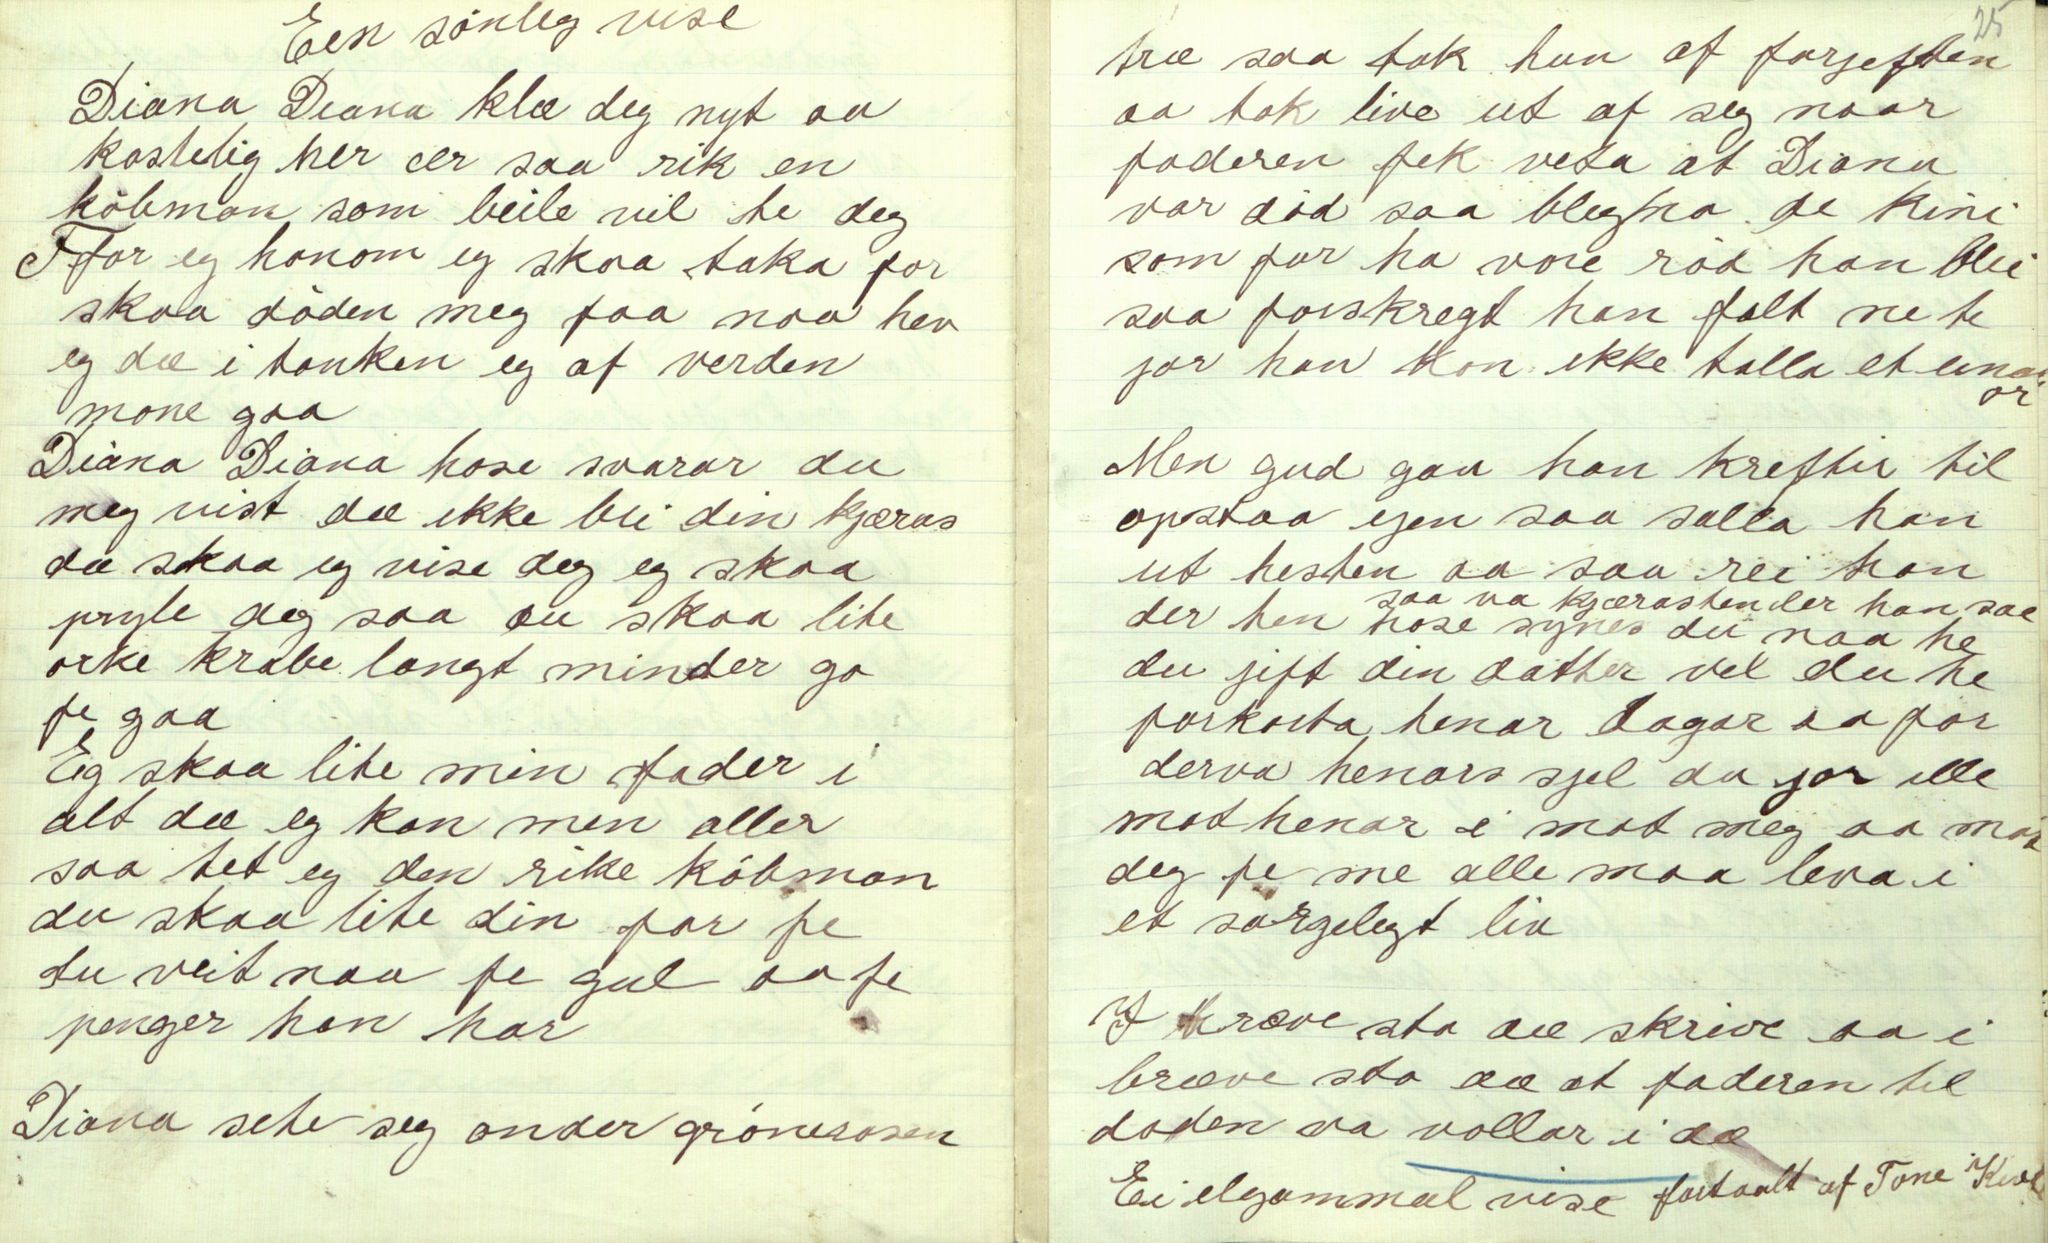 Een sönleg vise
Diana Deana klæ deg nyt aa
kostelig her ær saa rik en
köbman som beile vil te deg
For eg honom eg skaa taka for
skaa döden meg faa naa hev
eg dæ i tanken eg af verden
mone gaa
Diana Diana hose svarar du
meg vist dæ ikke bli din kjæras
dæ skaa eg vise deg eg skaa
pryle deg saa du skaa lite
orke krabe langt minder go
fe gaa
Eg skaa lite min fader i
alt dæ eg kan men aller
saa tet eg den rike köbman
du skaa lite din far fe
du veit naa fe gul aa fe
penger han har
Diana sete seg onder grönerosen
25
træ saa tok hun af forjeften
aa tok live ut af seg naar
faderen fek veta at Diana
var död saa blegna de kini
som før ha vore röd han blei
saa forskregt han falt ne te
jor han kon ikke talla et
or
Men gud gav han krefter til
opstaa ejen saa salla han
ut hesten aa saa rei han
der hen saa va kjærasten der han sae
hose synes du naa he
du jift din datter vel du he
forkorta henar dagar aa for
derva henars sjel du jor ille
mot henar i mot meg aa mot
deg fe me alle maa leva i
et sørgelegt liv
I bræve sto dæ skrive aa i
bræve sto dæ at faderen til
doden va vollar i dæ
Ei elgammal vise fortaalt af Tone